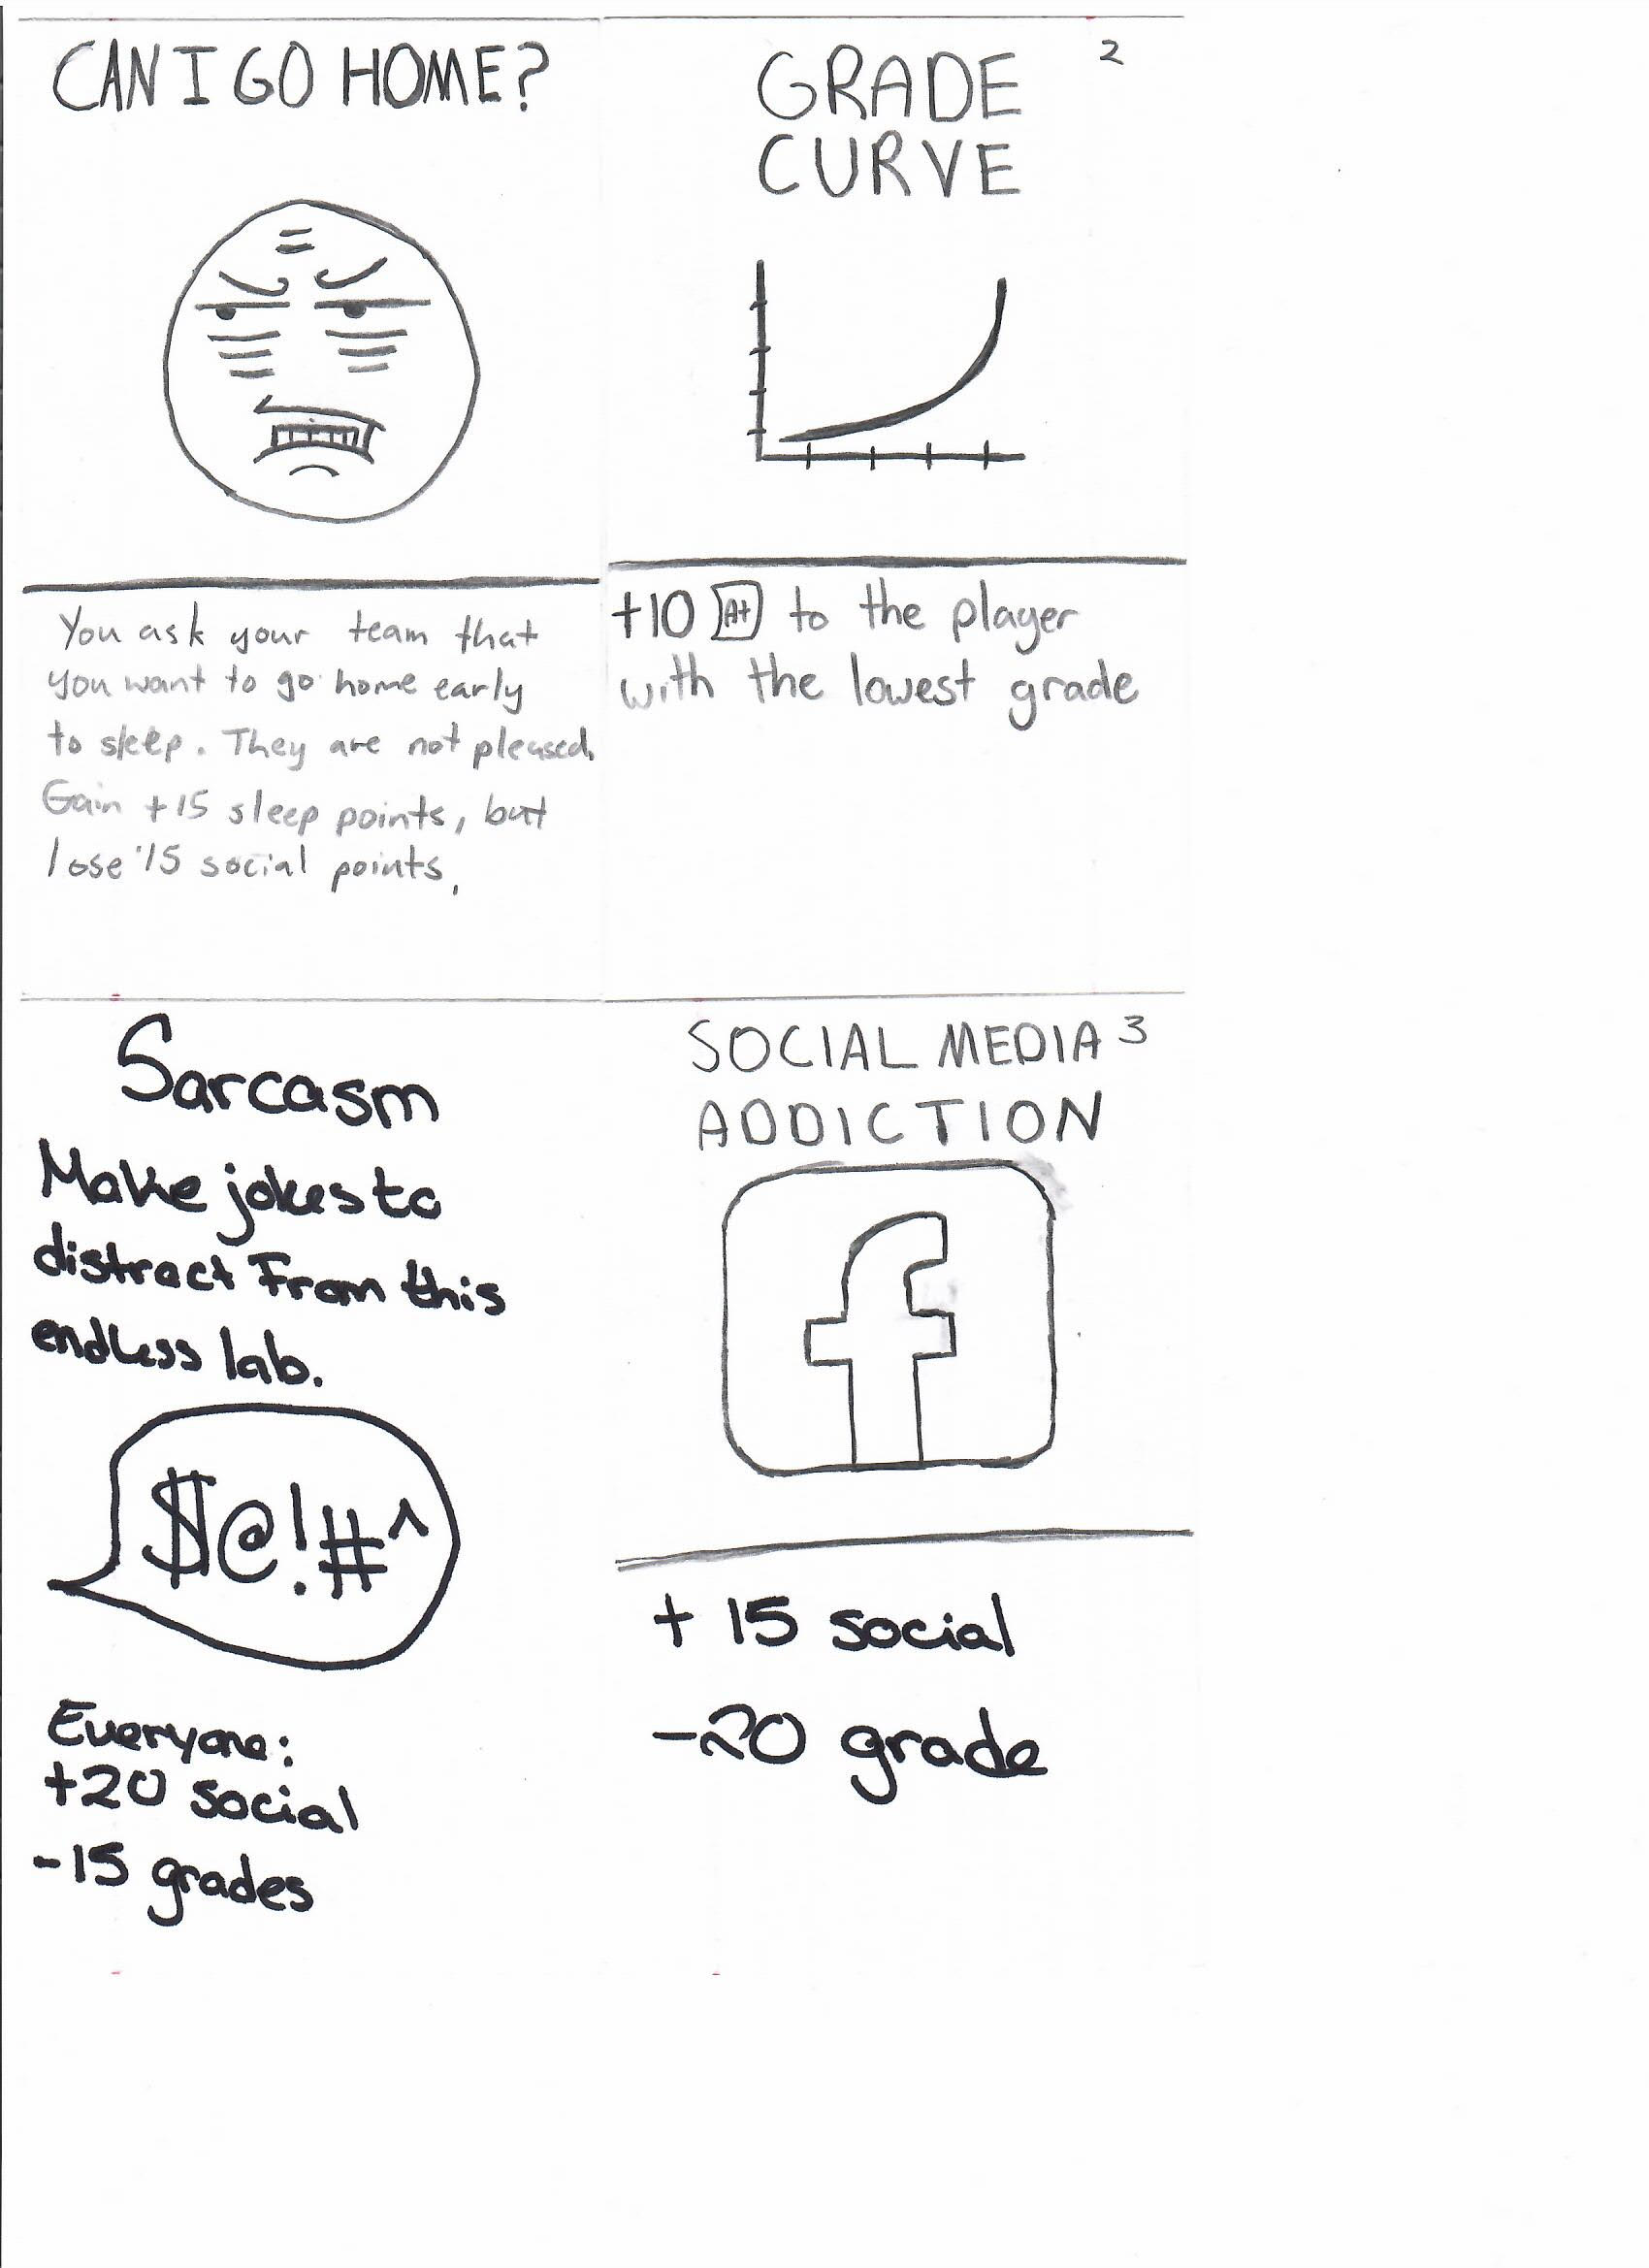 CAN I GO HOME?
You ask your team that
you want to go home early
to sleep. They are not pleased.
Gain +15 sleep points, but
lose 15 social points.
2
GRADE
CURVE
+10 A+ to the player
with the lowest grade
Sarcasm
Make jokes to
distract From this
endless lab.
$@!#^
Everyone:
+20 social
-15 grades
SOCIAL MEDIA 3
ADDICTION
f
+ 15 social
-20 grade